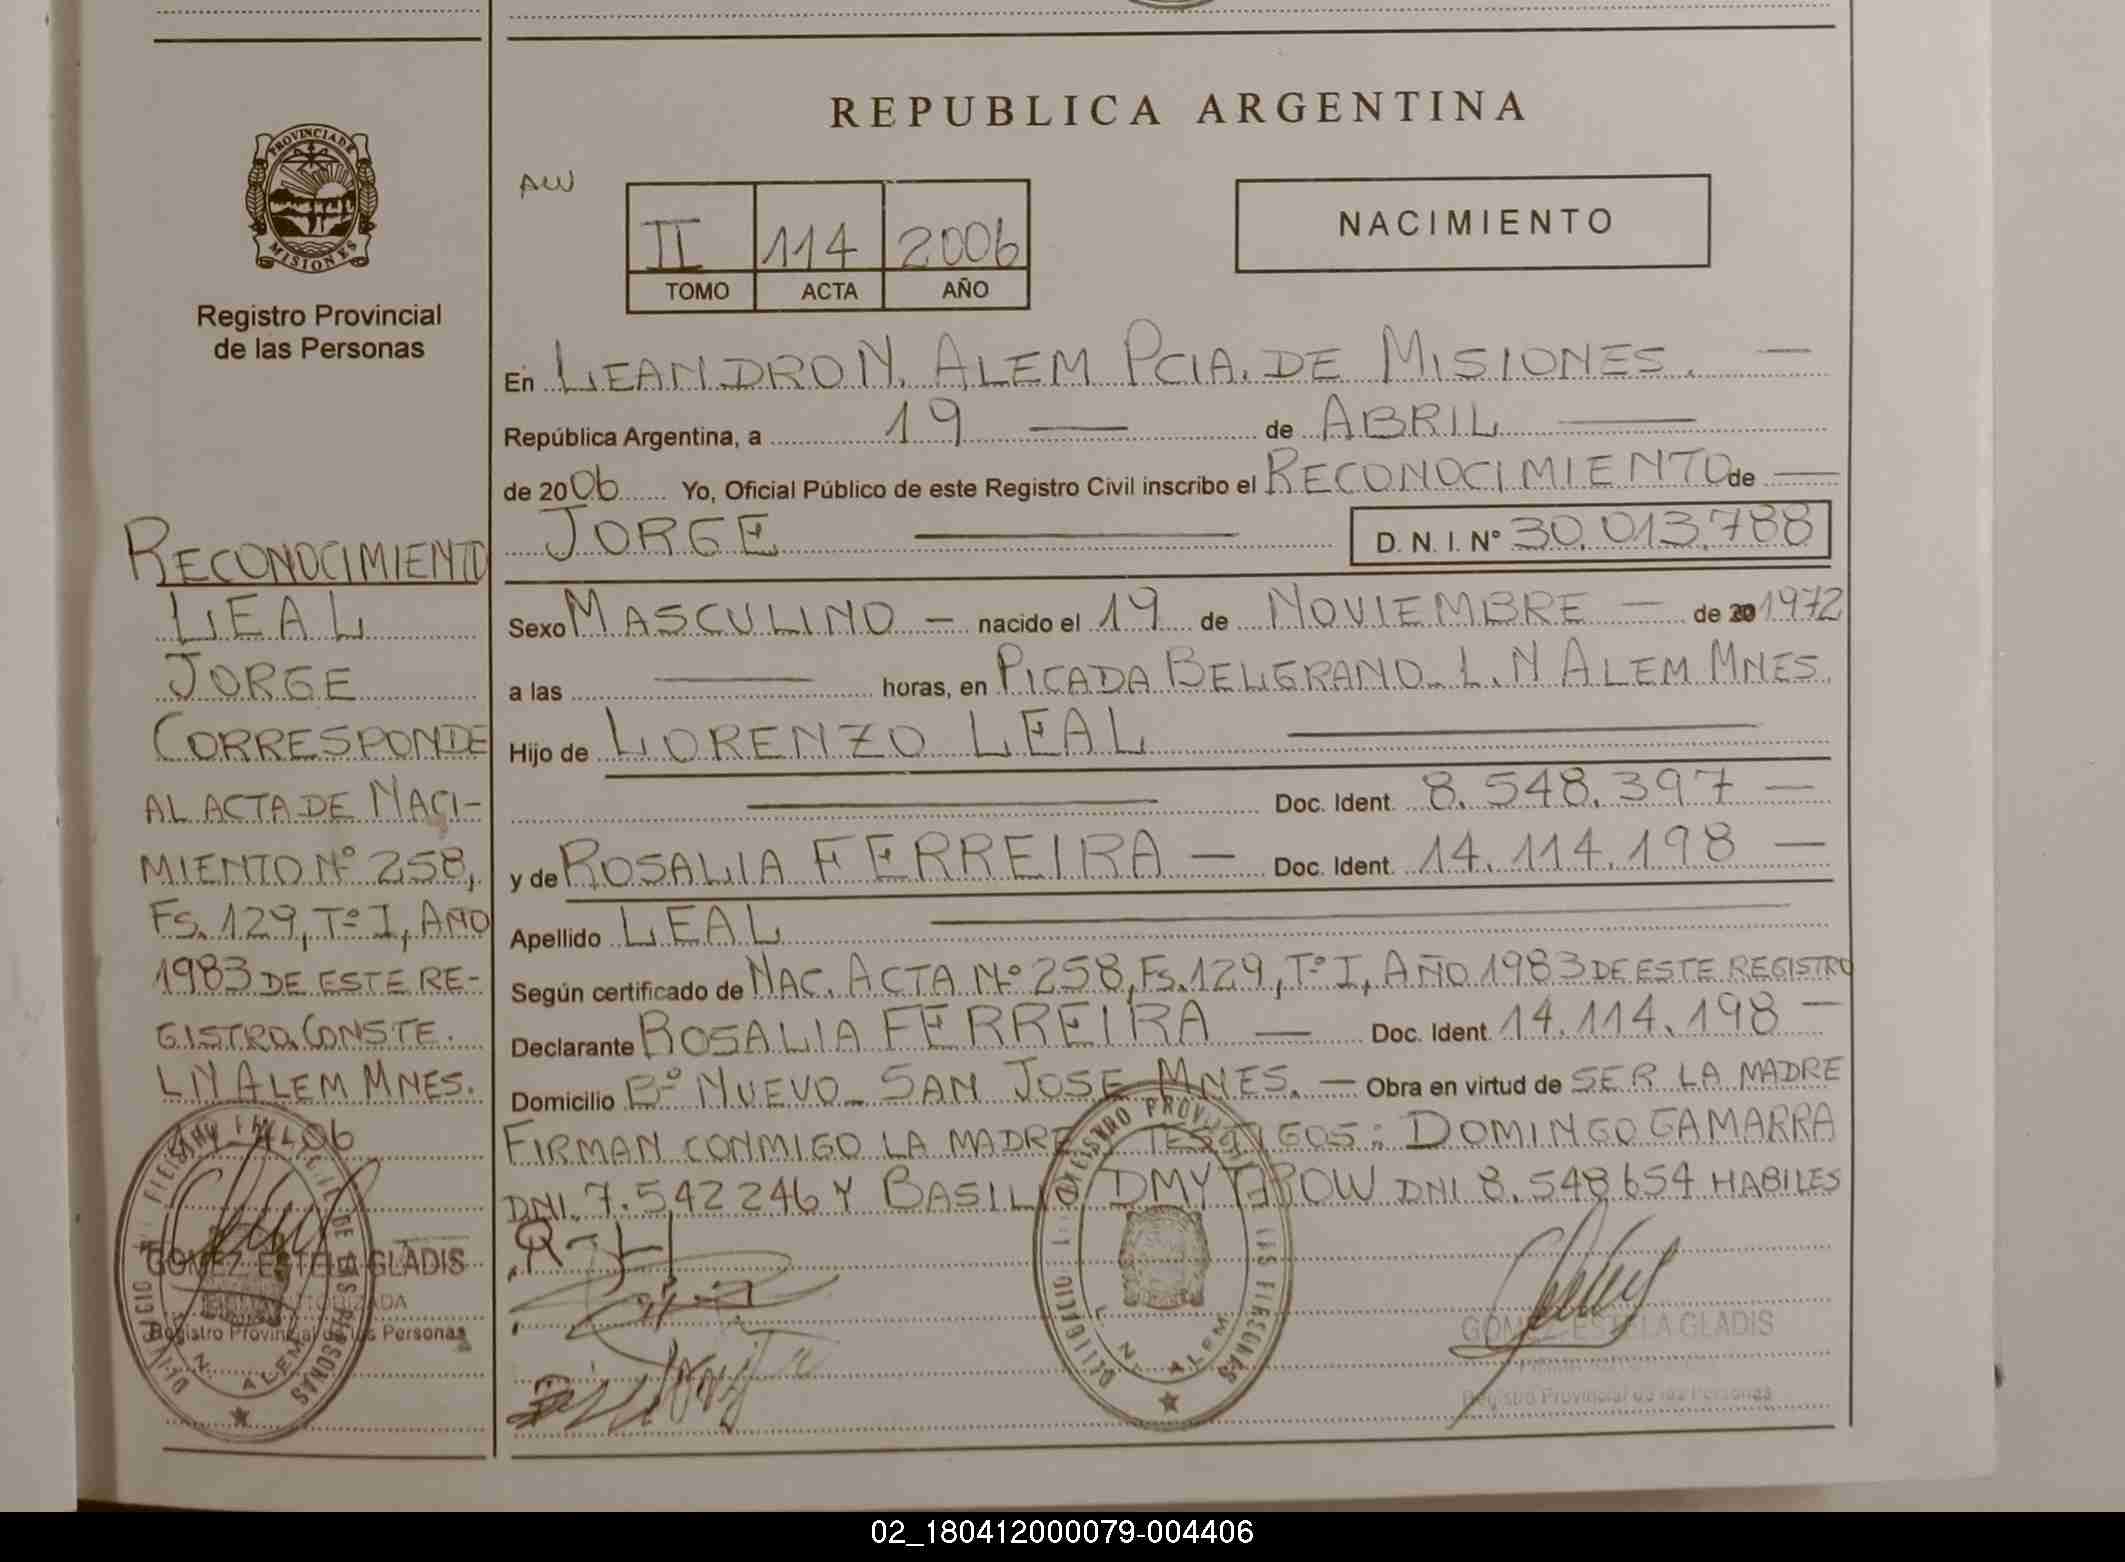 REPUBLICA ARGENTINA
PROVINCIA DE
MISIONES
Registro Provincial
de las Personas
AW
II 114 2006
TOMO ACTA AÑO
NACIMIENTO
En LEANDRO N. ALEM PCIA. DE MISIONES. —
República Argentina, a 19 — de ABRIL —
de 2006 Yo, Oficial Público de este Registro Civil inscribo el RECONOCIMIENTO de —
JORGE — D. N. I. Nº 30.013.788
Sexo MASCULINO — nacido el 19 de NOVIEMBRE — de 20 1972
a las — horas, en PICADA BELGRANO_L.N ALEM MNES.
Hijo de LORENZO LEAL —
— Doc. Ident. 8.548.397 —
y de ROSALIA FERREIRA — Doc. Ident. 14.114.198 —
Apellido LEAL —
Según certificado de NAC. ACTA Nº 258, Fs. 129, Tº I, AÑO 1983 DE ESTE REGISTRO
Declarante ROSALIA FERREIRA — Doc. Ident. 14.114.198 —
Domicilio Bº NUEVO_ SAN JOSE MNES. — Obra en virtud de SER LA MADRE
FIRMAN CONMIGO LA MADRE TESTIGOS: DOMINGO GAMARRA
DNI. 7.542246 Y BASILIO DMYTROW DNI 8.548654 HABILES
R-H
REGISTRO PROVINCIAL DE LAS PERSONAS
L. N. ALEM
GOMEZ ESTELA GLADIS
Registro Provincial de las Personas
RECONOCIMIENTO
LEAL
JORGE
CORRESPONDE
AL ACTA DE NACI-
MIENTO Nº 258,
Fs. 129, Tº I, AÑO
1983 DE ESTE RE-
GISTRO. CONSTE.
LN ALEM MNES.
GOMEZ ESTELA GLADIS
AUTORIZADA
Registro Provincial de las Personas
N. ALEM
02_180412000079-004406